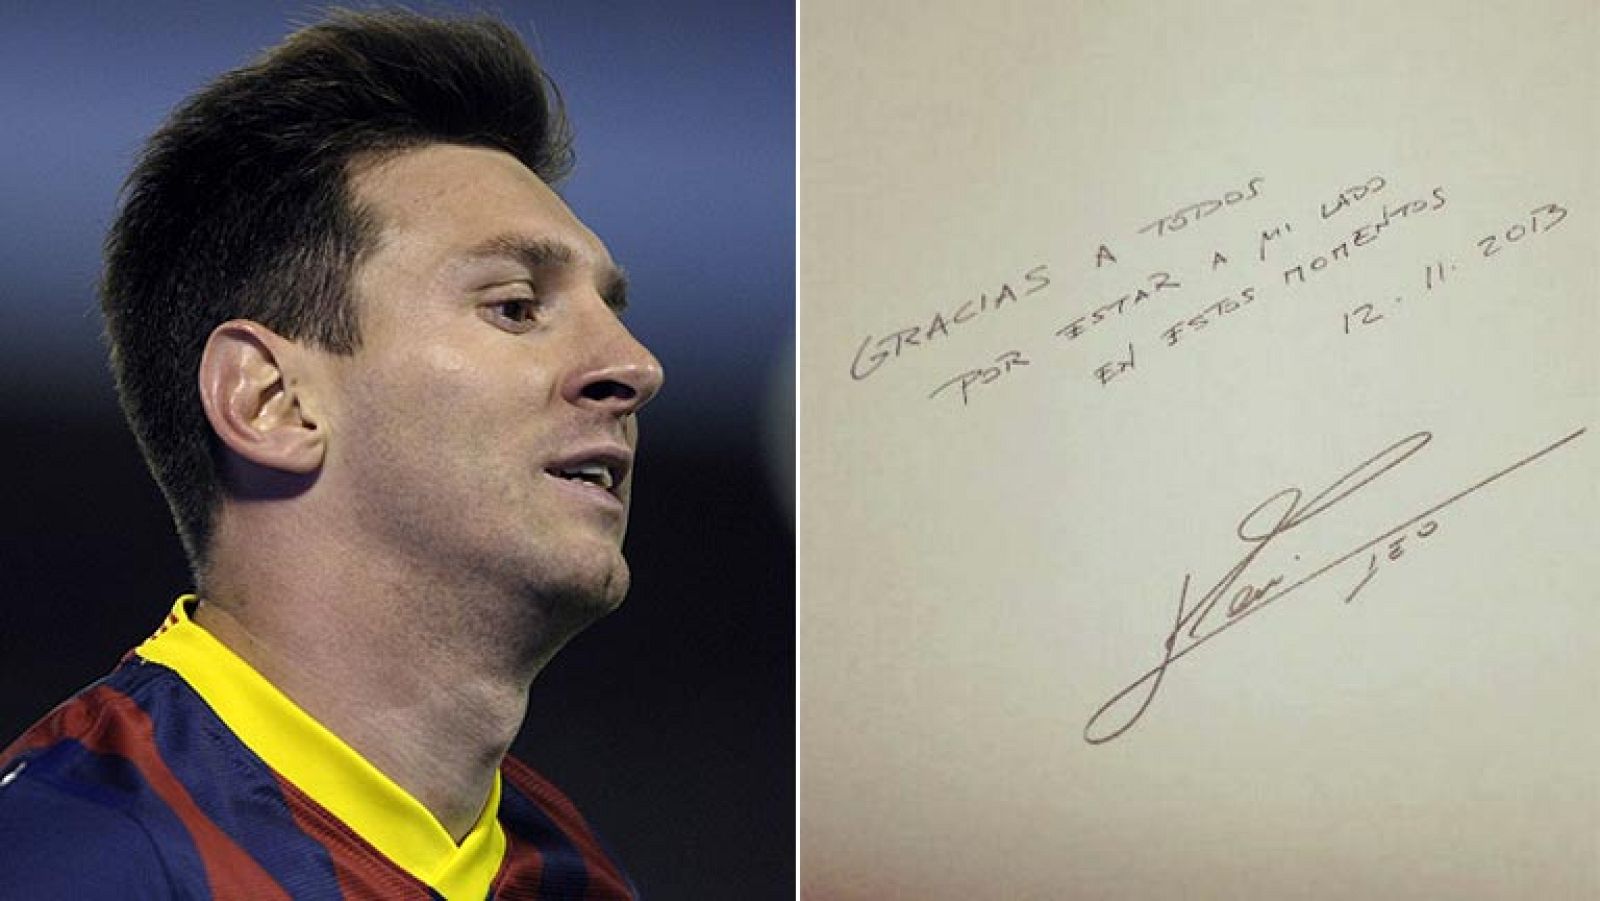 GRACIAS A TODOS
POR ESTAR A MI LADO
EN ESTOS MOMENTOS
12.11.2013
LEO